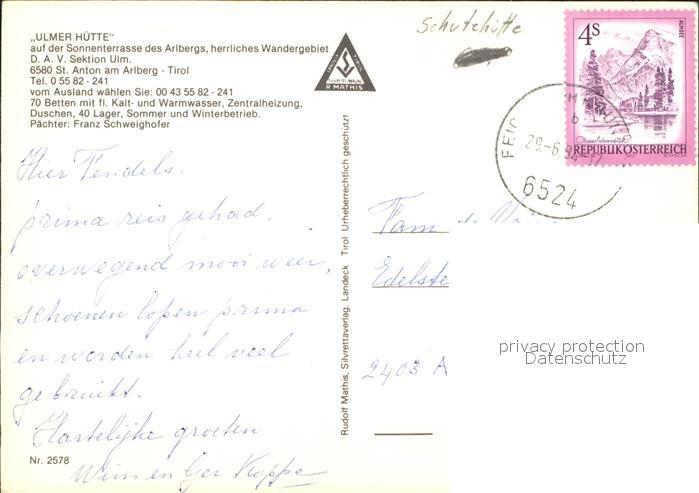 „ULMER HÜTTE"
auf der Sonnenterrasse des Arlbergs, herrliches Wandergebiet
D. A. V. Sektion Ulm.
6580 St. Anton am Arlberg - Tirol
Tel. 0 55 82 - 241
vom Ausland wählen Sie: 00 43 55 82 - 241
70 Betten mit fl. Kalt- und Warmwasser, Zentralheizung,
Duschen, 40 Lager, Sommer und Winterbetrieb.
Pächter: Franz Schweighofer
Hier Fendels.
prima reis gehad.
overwegend mooi weer,
schoenen lopen prima
en worden heel veel
gebruikt.
Hartelijke groeten
Wim en Ger
Nr. 2578
R. MATHIS
Rudolf Mathis, Silvrettaverlag, Landeck Tirol Urheberrechtlich geschützt
Schutzhütte
4S
ALMSEE
REPUBLIK ÖSTERREICH
FEIC
b
29.-6.84-12
6524
Fam de
Edelste
2403 A
privacy protection
Datenschutz